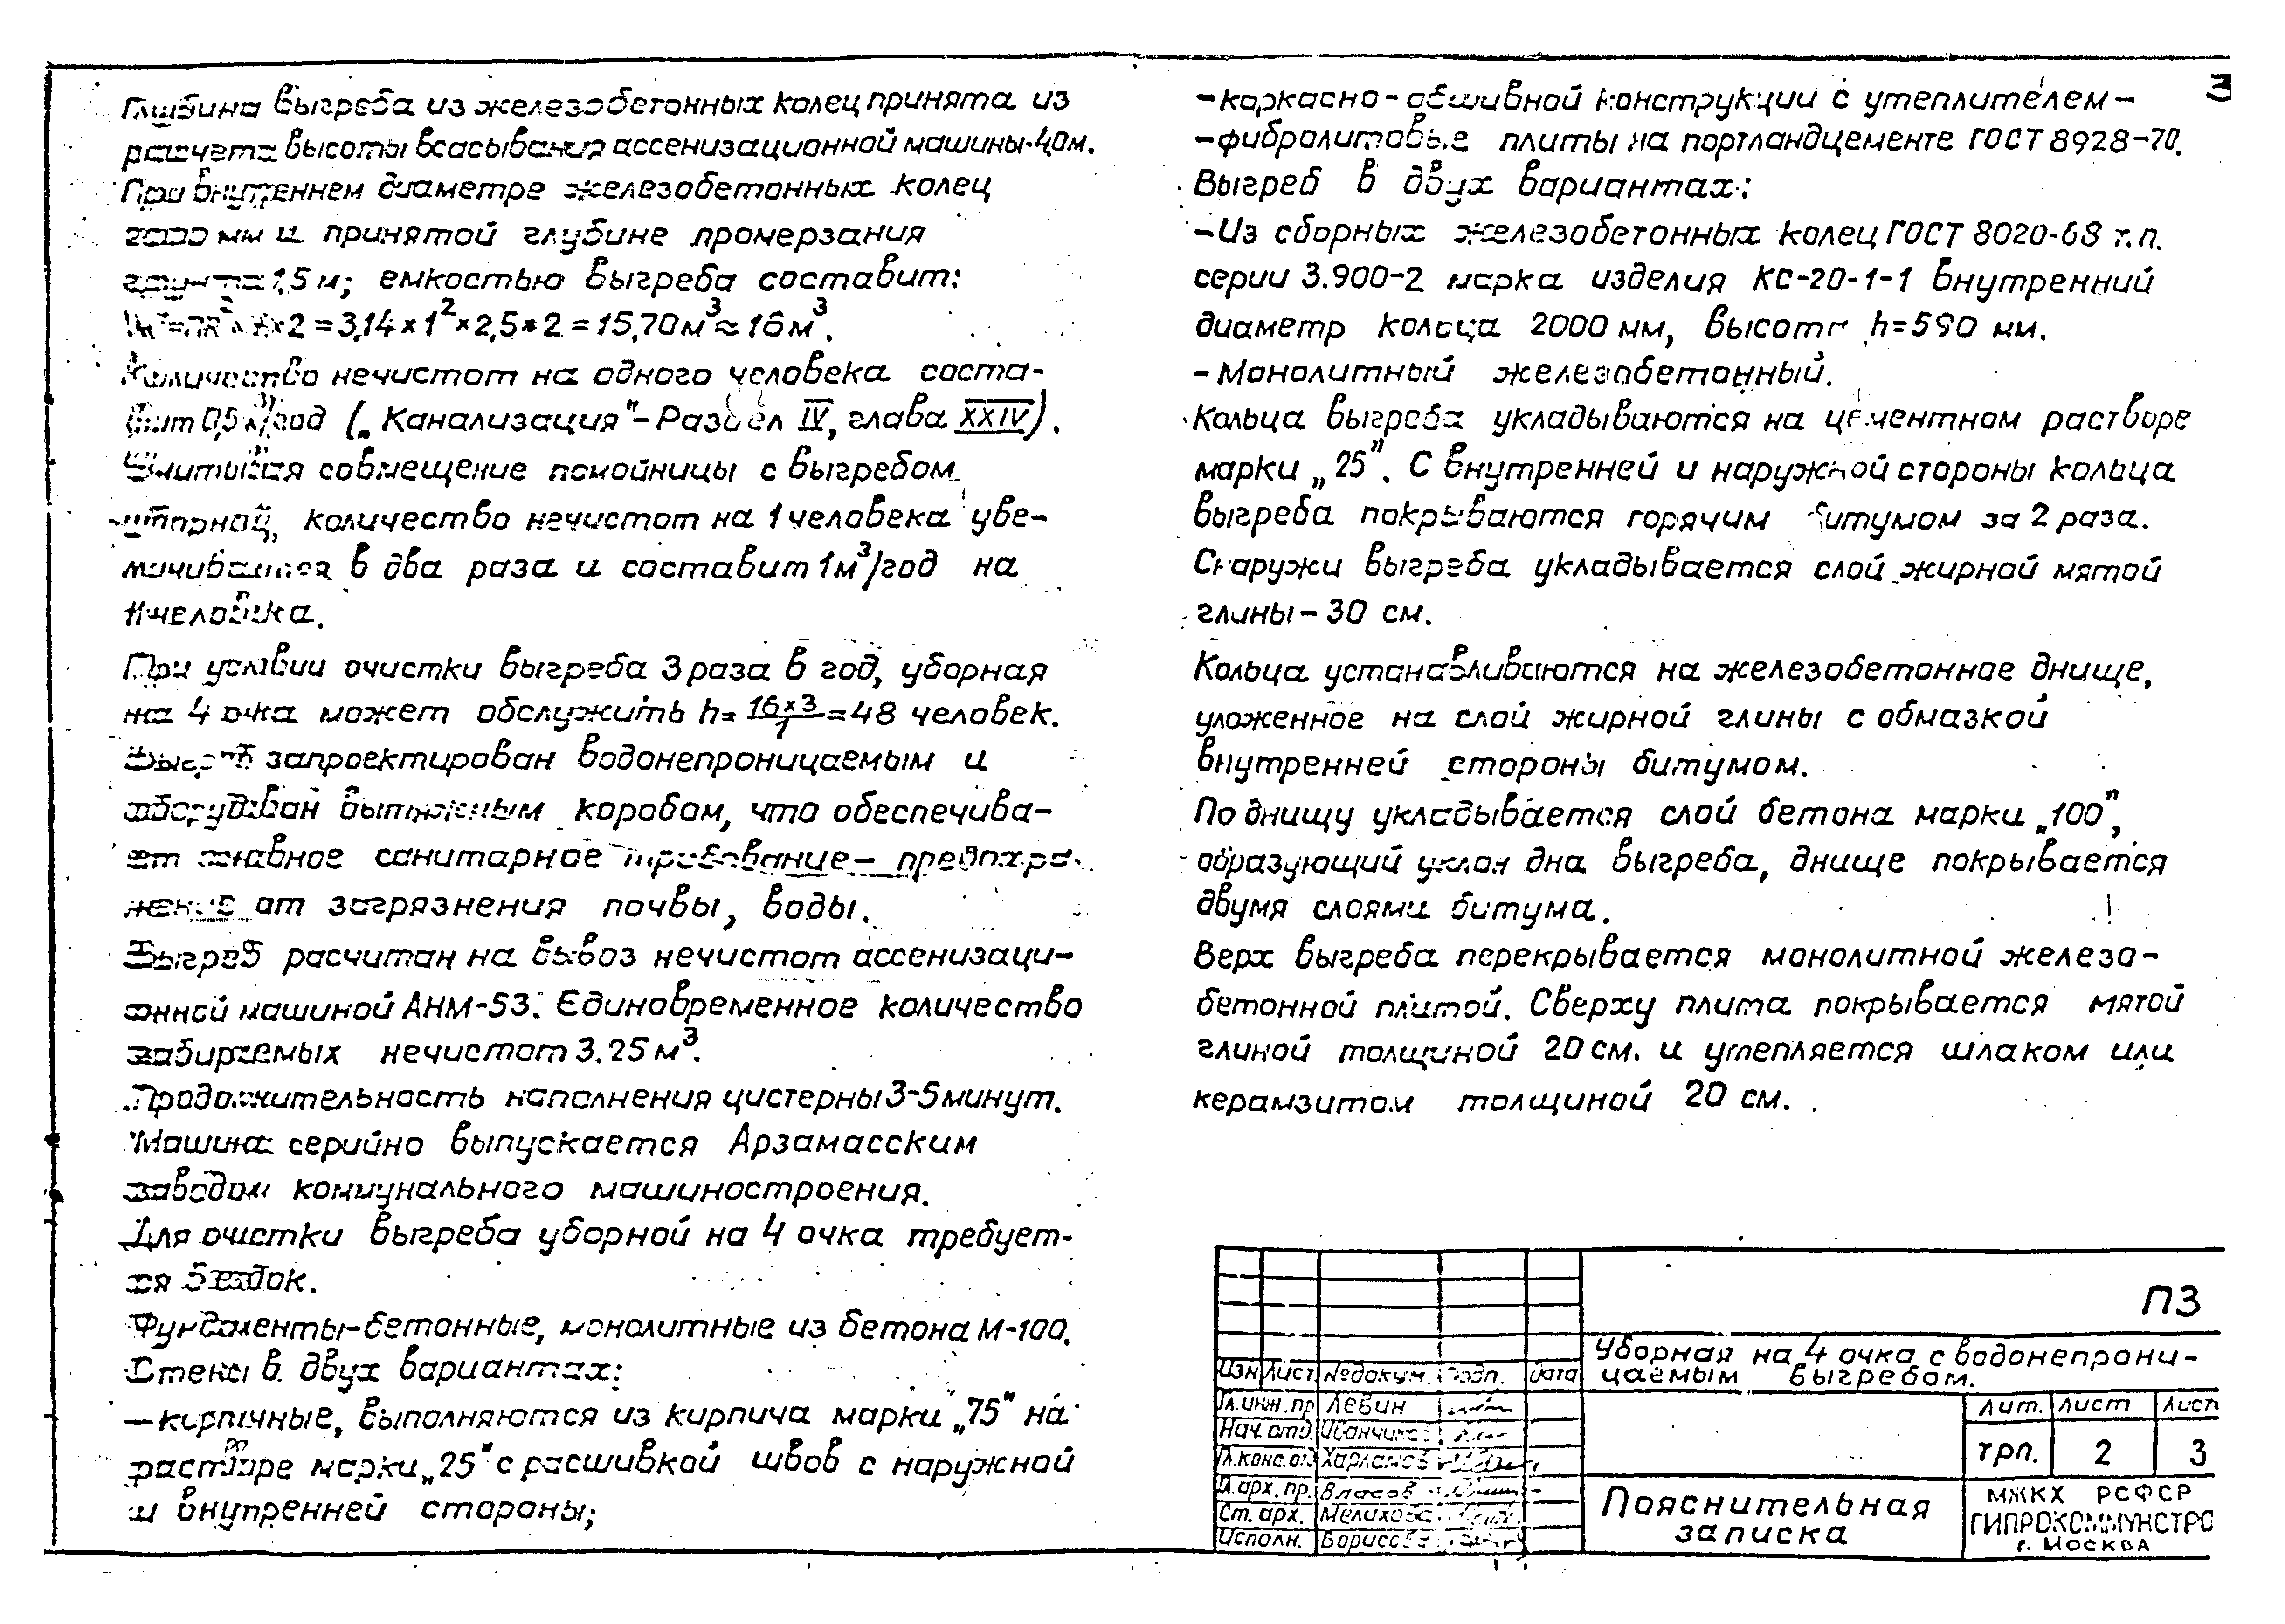 Глубина выгреба из железобетонных колец принята из
расчета высоты всасывания ассенизационной машины-4,0м.
При внутреннем диаметре железобетонных колец
2000 мм и принятой глубине промерзания
грунта 1,5 м; емкостью выгреба составит:
×2 = 3,14 × 1² × 2,5 × 2 = 15,70 м³ ≈ 16 м³.
Количество нечистот на одного человека соста-
вит 0,5 м³/год („Канализация"- Раздел IV, глава XXIV).
Учитывая совмещение помойницы с выгребом
уборной, количество нечистот на 1 человека уве-
личивается в два раза и составит 1м³/год на
1 человека.
При условии очистки выгреба 3 раза в год, уборная
на 4 очка может обслужить h= 16×3/1 =48 человек.
Выгреб запроектирован водонепроницаемым и
оборудован вытяжным коробом, что обеспечива-
ет главное санитарное требование- предохра-
жение от загрязнения почвы, воды.
Выгреб расчитан на вывоз нечистот ассенизаци-
онной машиной АНМ-53. Единовременное количество
забираемых нечистот 3.25 м³.
Продолжительность наполнения цистерны 3-5 минут.
Машина серийно выпускается Арзамасским
заводом коммунального машиностроения.
Для очистки выгреба уборной на 4 очка требует-
ся 5 ездок.
Фундаменты-бетонные, монолитные из бетона М-100.
Стены в двух вариантах:
- кирпичные, выполняются из кирпича марки „75" на
растворе марки „25" с расшивкой швов с наружной
и внутренней стороны;
3
- каркасно - обшивной конструкции с утеплителем -
- фибролитовые плиты на портландцементе ГОСТ 8928-70.
Выгреб в двух вариантах:
- Из сборных железобетонных колец ГОСТ 8020-68 т.п.
серии 3.900-2 марка изделия КС-20-1-1 внутренний
диаметр кольца 2000 мм, высота h=590 мм.
- Монолитный железобетонный.
Кольца выгреба укладываются на цементном растворе
марки „25". С внутренней и наружной стороны кольца
выгреба покрываются горячим битумом за 2 раза.
Снаружи выгреба укладывается слой жирной мятой
глины - 30 см.
Кольца устанавливаются на железобетонное днище,
уложенное на слой жирной глины с обмазкой
внутренней стороны битумом.
По днищу укладывается слой бетона марки „100",
образующий уклон дна выгреба, днище покрывается
двумя слоями битума.
Верх выгреба перекрывается монолитной железо-
бетонной плитой. Сверху плита покрывается мятой
глиной толщиной 20 см. и утепляется шлаком или
керамзитом толщиной 20 см.
ПЗ
Уборная на 4 очка с водонепрони-
цаемым выгребом.
Изм Лист №докум. Подп. Дата
Гл.инж.пр Левин
Нач.отд. Иванчиков
Гл.конс.от. Харламов
Гл.арх.пр. Власов
Ст. арх. Мелихова
Исполн. Борисова
Лит. Лист Лист
трп. 2 3
Пояснительная
записка
МЖКХ РСФСР
ГИПРОКОММУНСТРО
г. Москва